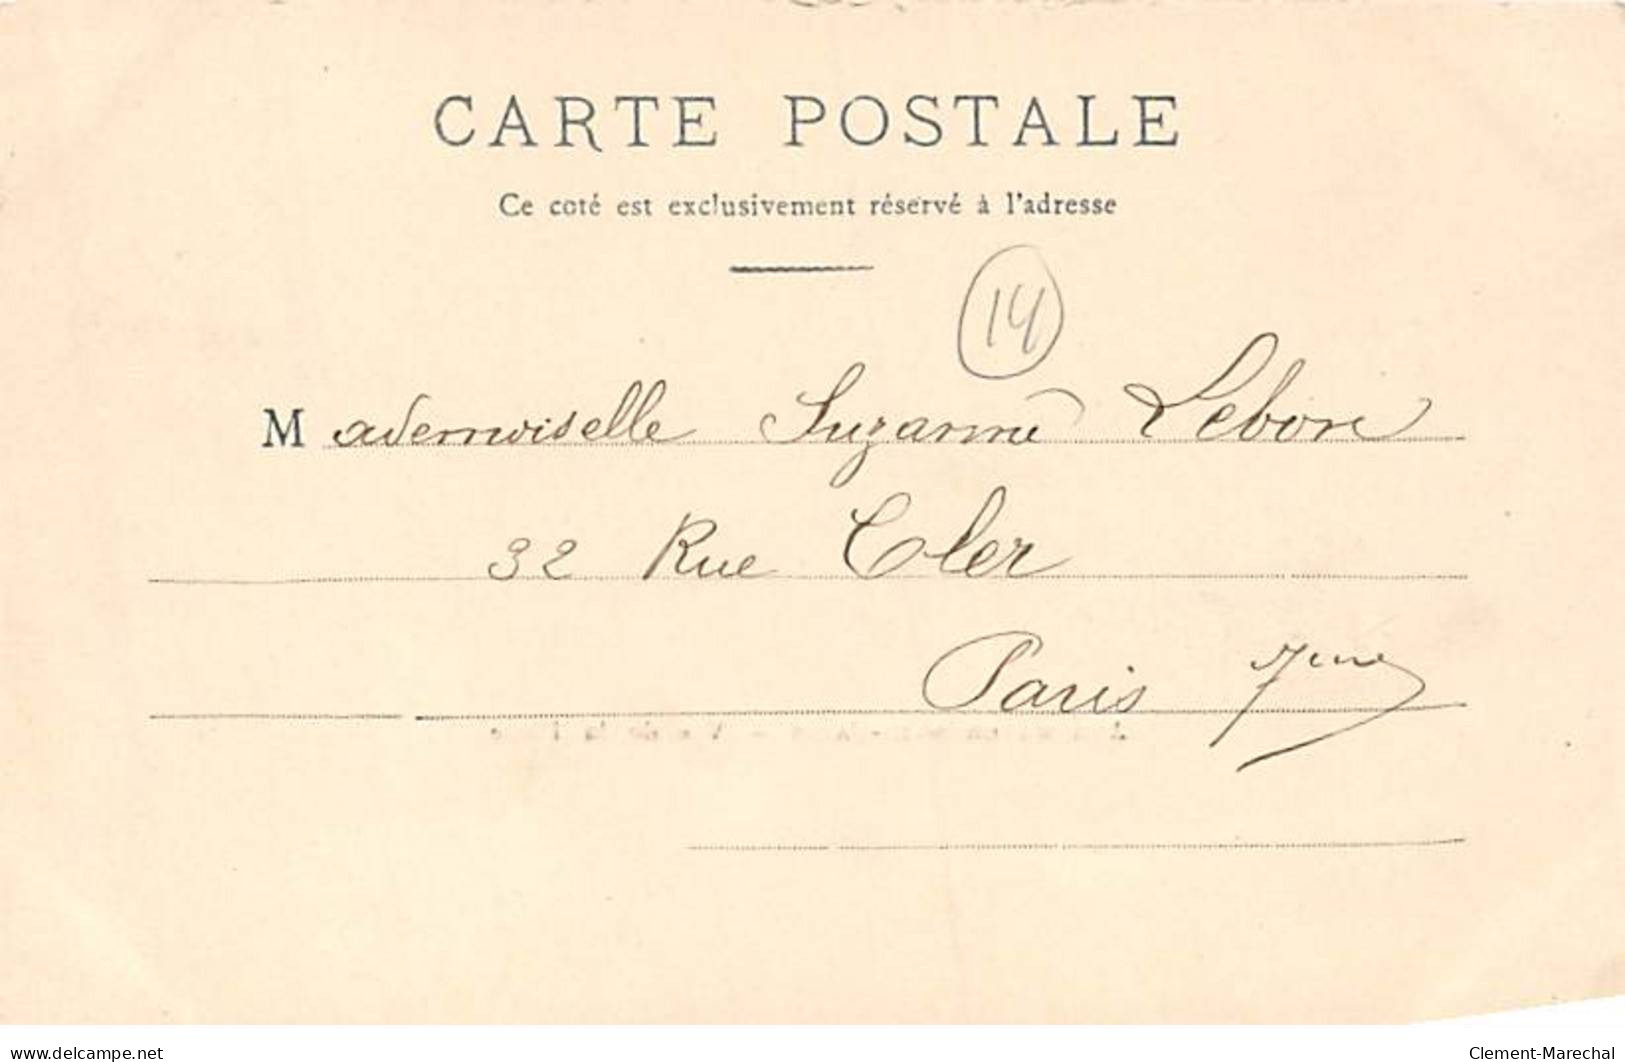 CARTE POSTALE
Ce coté est exclusivement réservé à l'adresse
14
Mademoiselle Suzanne Lebon
32 Rue Cler
Paris 7eme
delcampe.net
Clement-Marechal